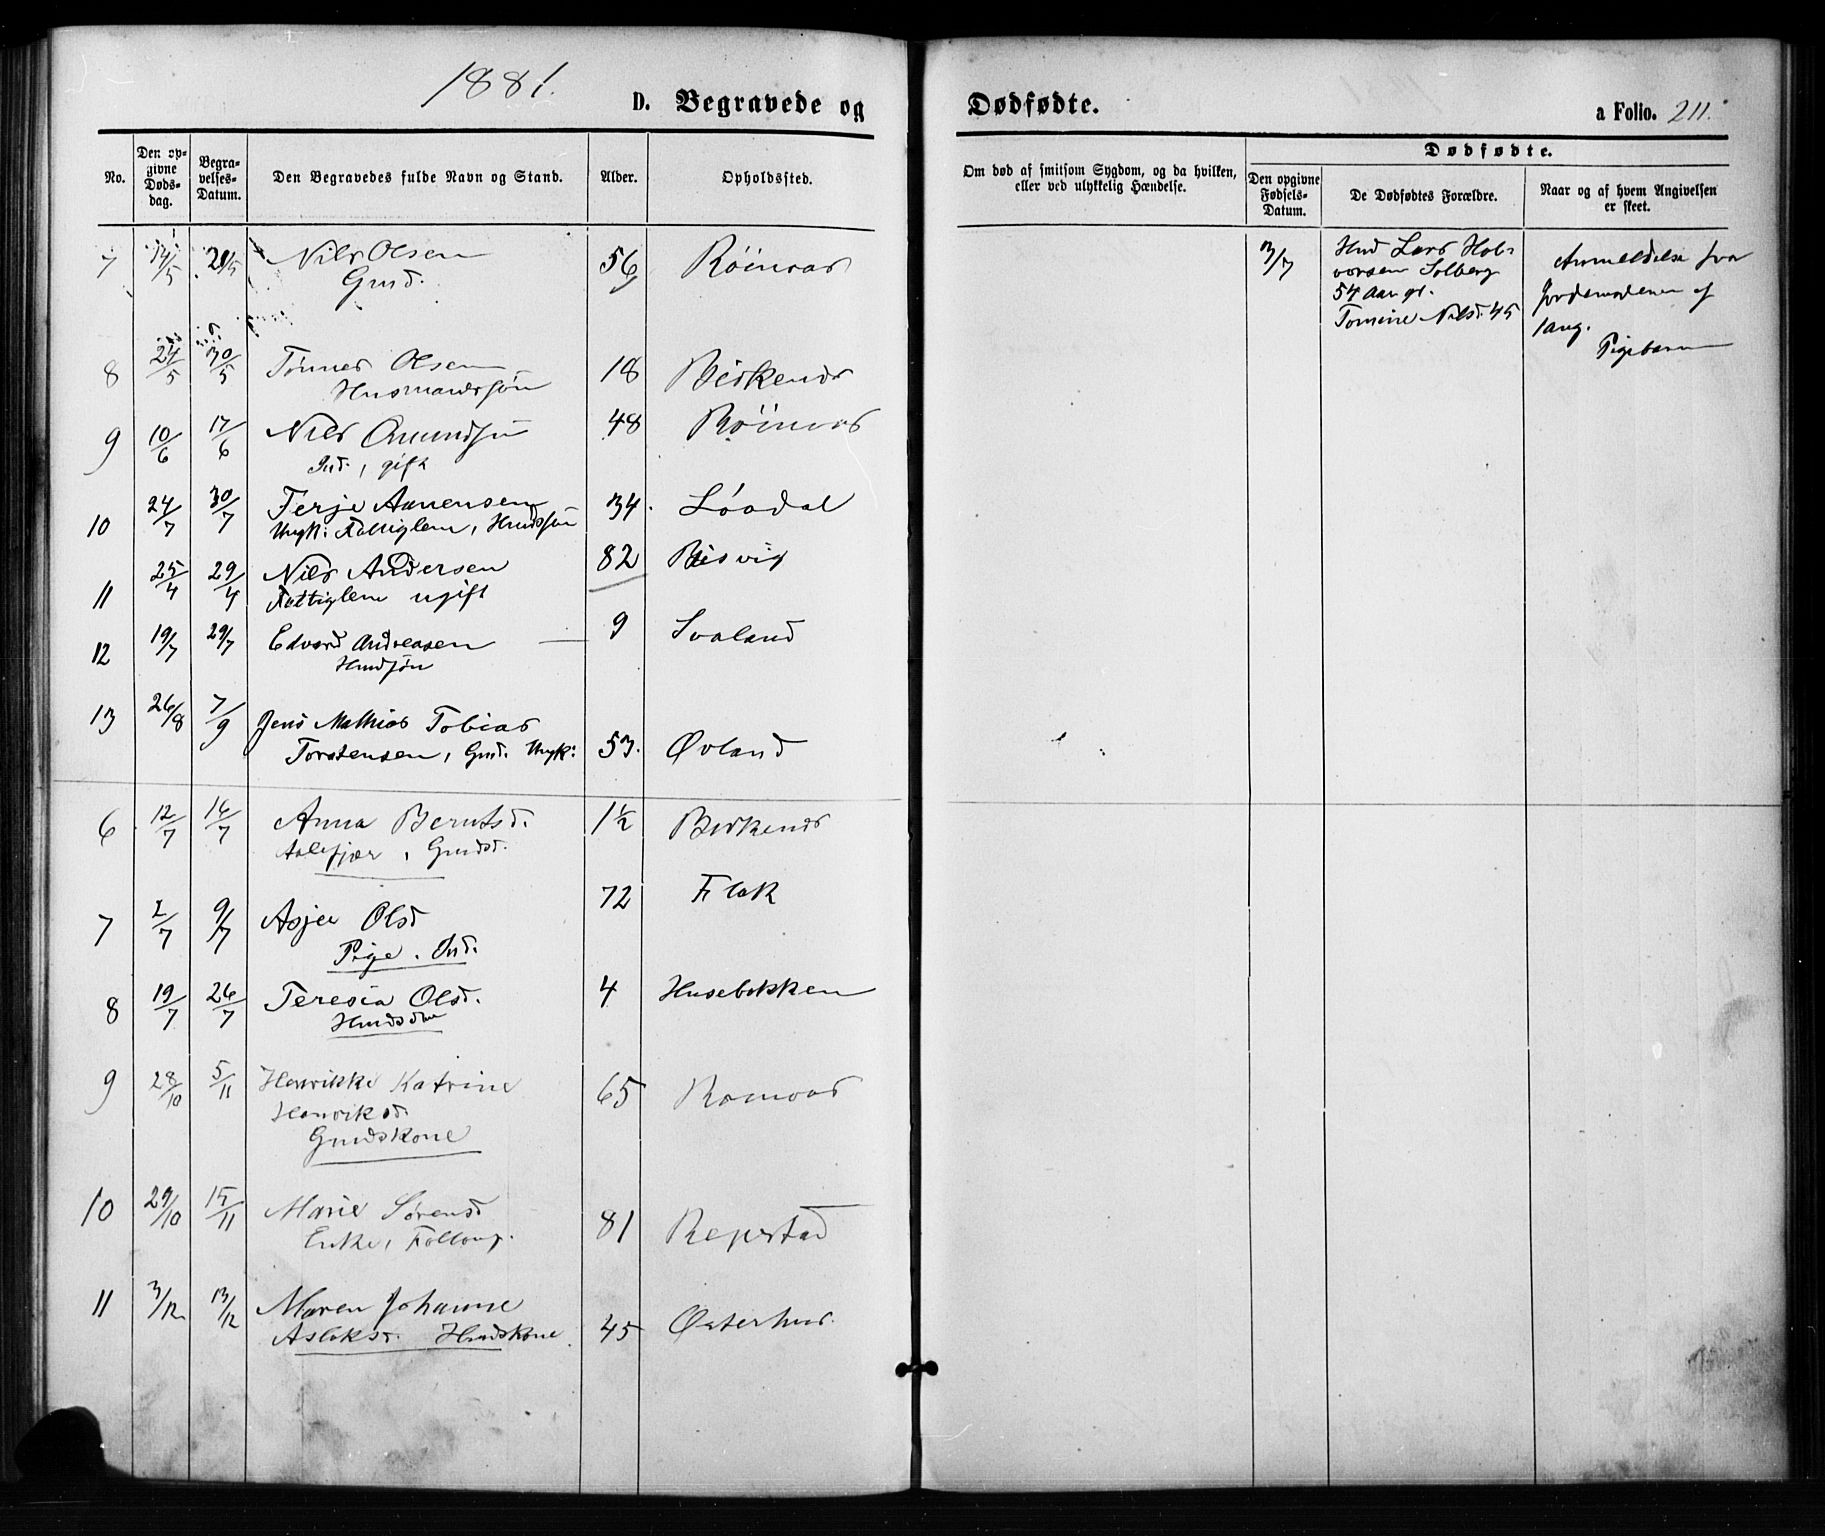 1881.
D. Begravede og
Dødfødte.
a Folio. 211.
No.
Den op-
givne
Døds-
dag.
Begra-
velses-
Datum.
Den Begravedes fulde Navn og Stand.
Alder.
Opholdssted.
Om død af smitsom Sygdom, og da hvilken,
eller ved ulykkelig Hændelse.
Dødfødte.
Den opgivne
Fødsels-
Datum.
De Dødfødtes Forældre.
Naar og af hvem Angivelsen
er skeet.
7 14/5 Nils Olsen 56
Gmd.
8 24/5 30/5 Tønnes Olsen 18 Birkenes
Husmandssøn
9 10/6 17/6 Nils Omundsen 48
Ind., gift
10 24/7 30/7 Terje Aanensen 34.
Ungk: Fattiglem, Hmdssøn
11 25/4 29/4 Nils Andersen 82
Fattiglem ugift
12 19/7 29/7 Edvard Andreasen — 9 Svaland
Hmdsøn
13 26/8 7/9 Jens Mathias Tobias
Torstensen, Gmd. Ungk: 53. Øvland
6 12/7 16/7 Anna Berntsd. 1½ Birkenes
Aalefjær, Gmdsd.
7 2/7 9/7 Asjer Olsd 72 Flak
Pige. Ind.
8 19/7 26/7 Teresia Olsd. 4
Hmdsdtr
9 28/10 5/11 Henrikke Katrine 65
Henriksd.
Gmdskone
10 29/10 15/11 Marie Sørensd 81 Repstad
Enke,
11 3/12 13/12 Maren Johanne
Aslaksd. Hmdskone. 45 Østerhus
3/7 Hmd Lars Hal-
vorsen Solberg
54 Aar gl.
Tomine Nilsd. 45
Anmeldelse fra
Jordemoderen af
1 aug.
Pigebarn